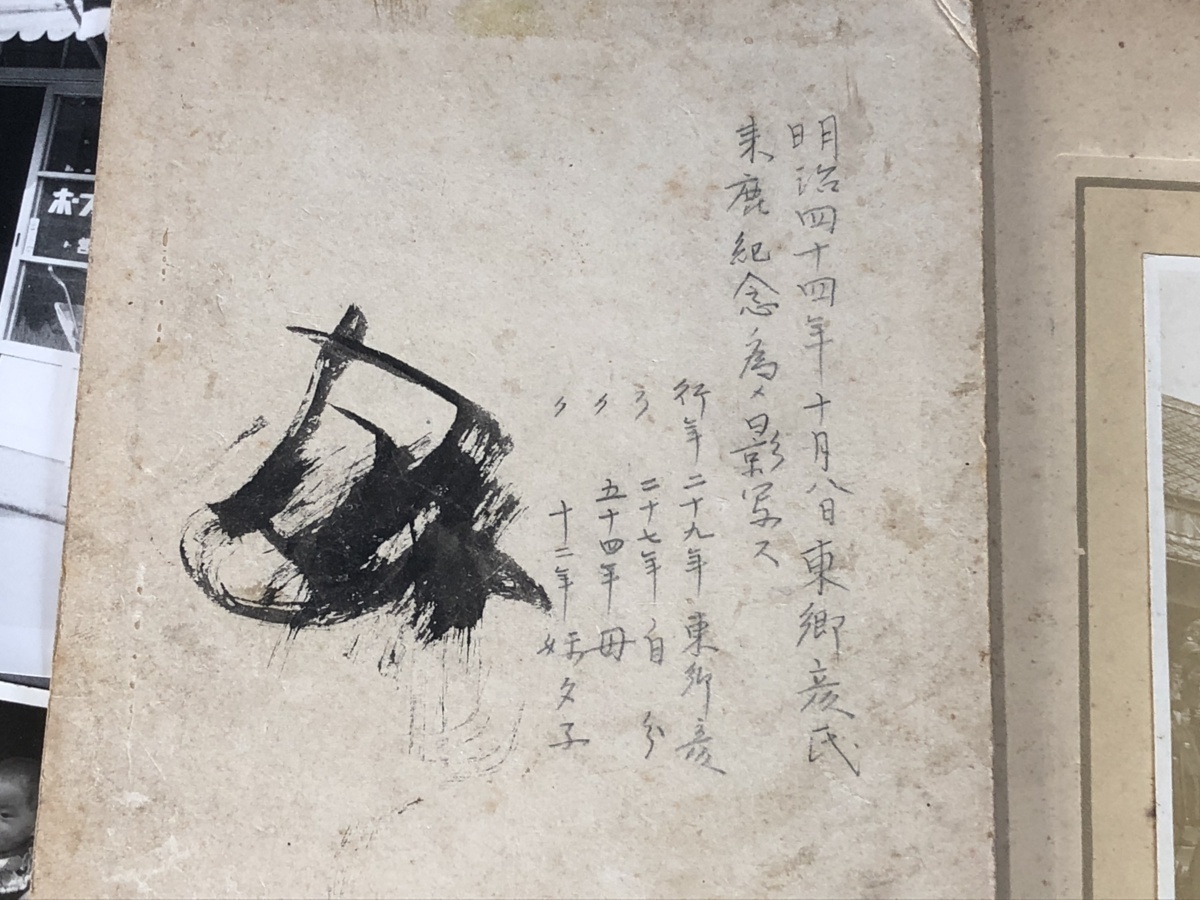 明治四十四年十月八日東郷彦氏
来鹿紀念為メ影写ス
行年二十九年東郷彦
〃二十七年自分
〃五十四年母
〃十二年妹夕子
ホープ